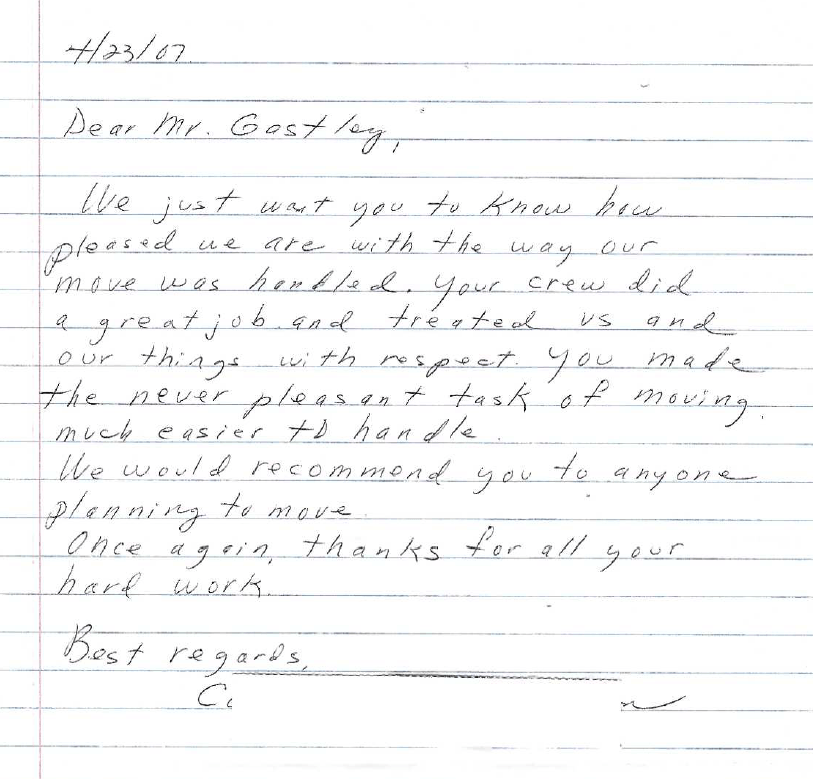 4/23/07
Dear Mr. Gastley,
We just want you to know how
pleased we are with the way our
move was handled. Your crew did
a great job and treated us and
our things with respect. You made
the never pleasant task of moving
much easier to handle.
We would recommend you to anyone
planning to move.
Once again, thanks for all your
hard work.
Best regards,